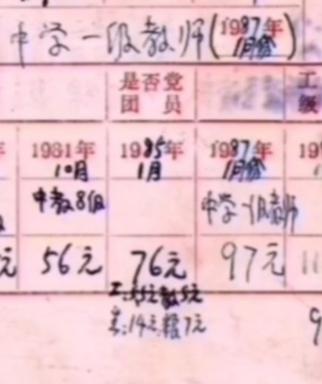 中学一级教师(1987年1月份)
是否党
团 员
工
级
年 1981年 1985年 1987年 19
10月 1月 1月份
中教8级 中学一级教师
元 56元 76元 97元 11
工:55元 教5元
米:14元 粮7元
9